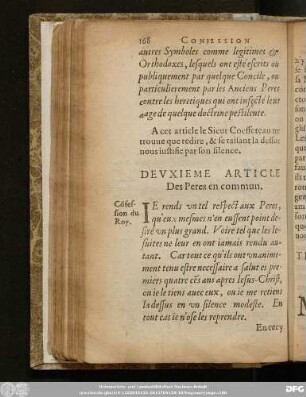 168 CONFESSION
autres Symboles comme legitimes &
Orthodoxes, lesquels ont esté escrits ou
publiquement par quelque Concile, ou
particulierement par les Anciens Peres
contre les heretiques qui ont infecté leur
aage de quelque doctrine pestilente.
A cet article le Sieur Coeffeteau ne
trouue que redire, & se taisant là dessus
nous iustifie par son silence.
DEVXIEME ARTICLE
Des Peres en commun.
Cōfes-
sion du
Roy.
IE rends vn tel respect aux Peres,
qu'eux mesmes n'en eussent point de-
siré vn plus grand. Voire tel que les Ie-
suites ne leur en ont iamais rendu au-
tant. Car tout ce qu'ils ont vnanime-
ment tenu estre necessaire a salut es pre-
miers quatre cēs ans apres Iesus-Christ,
ou ie le tiens auec eux, ou ie me retiens
la dessus en vn silence modeste. En
tout cas ie n'ose les reprendre.
En cecy